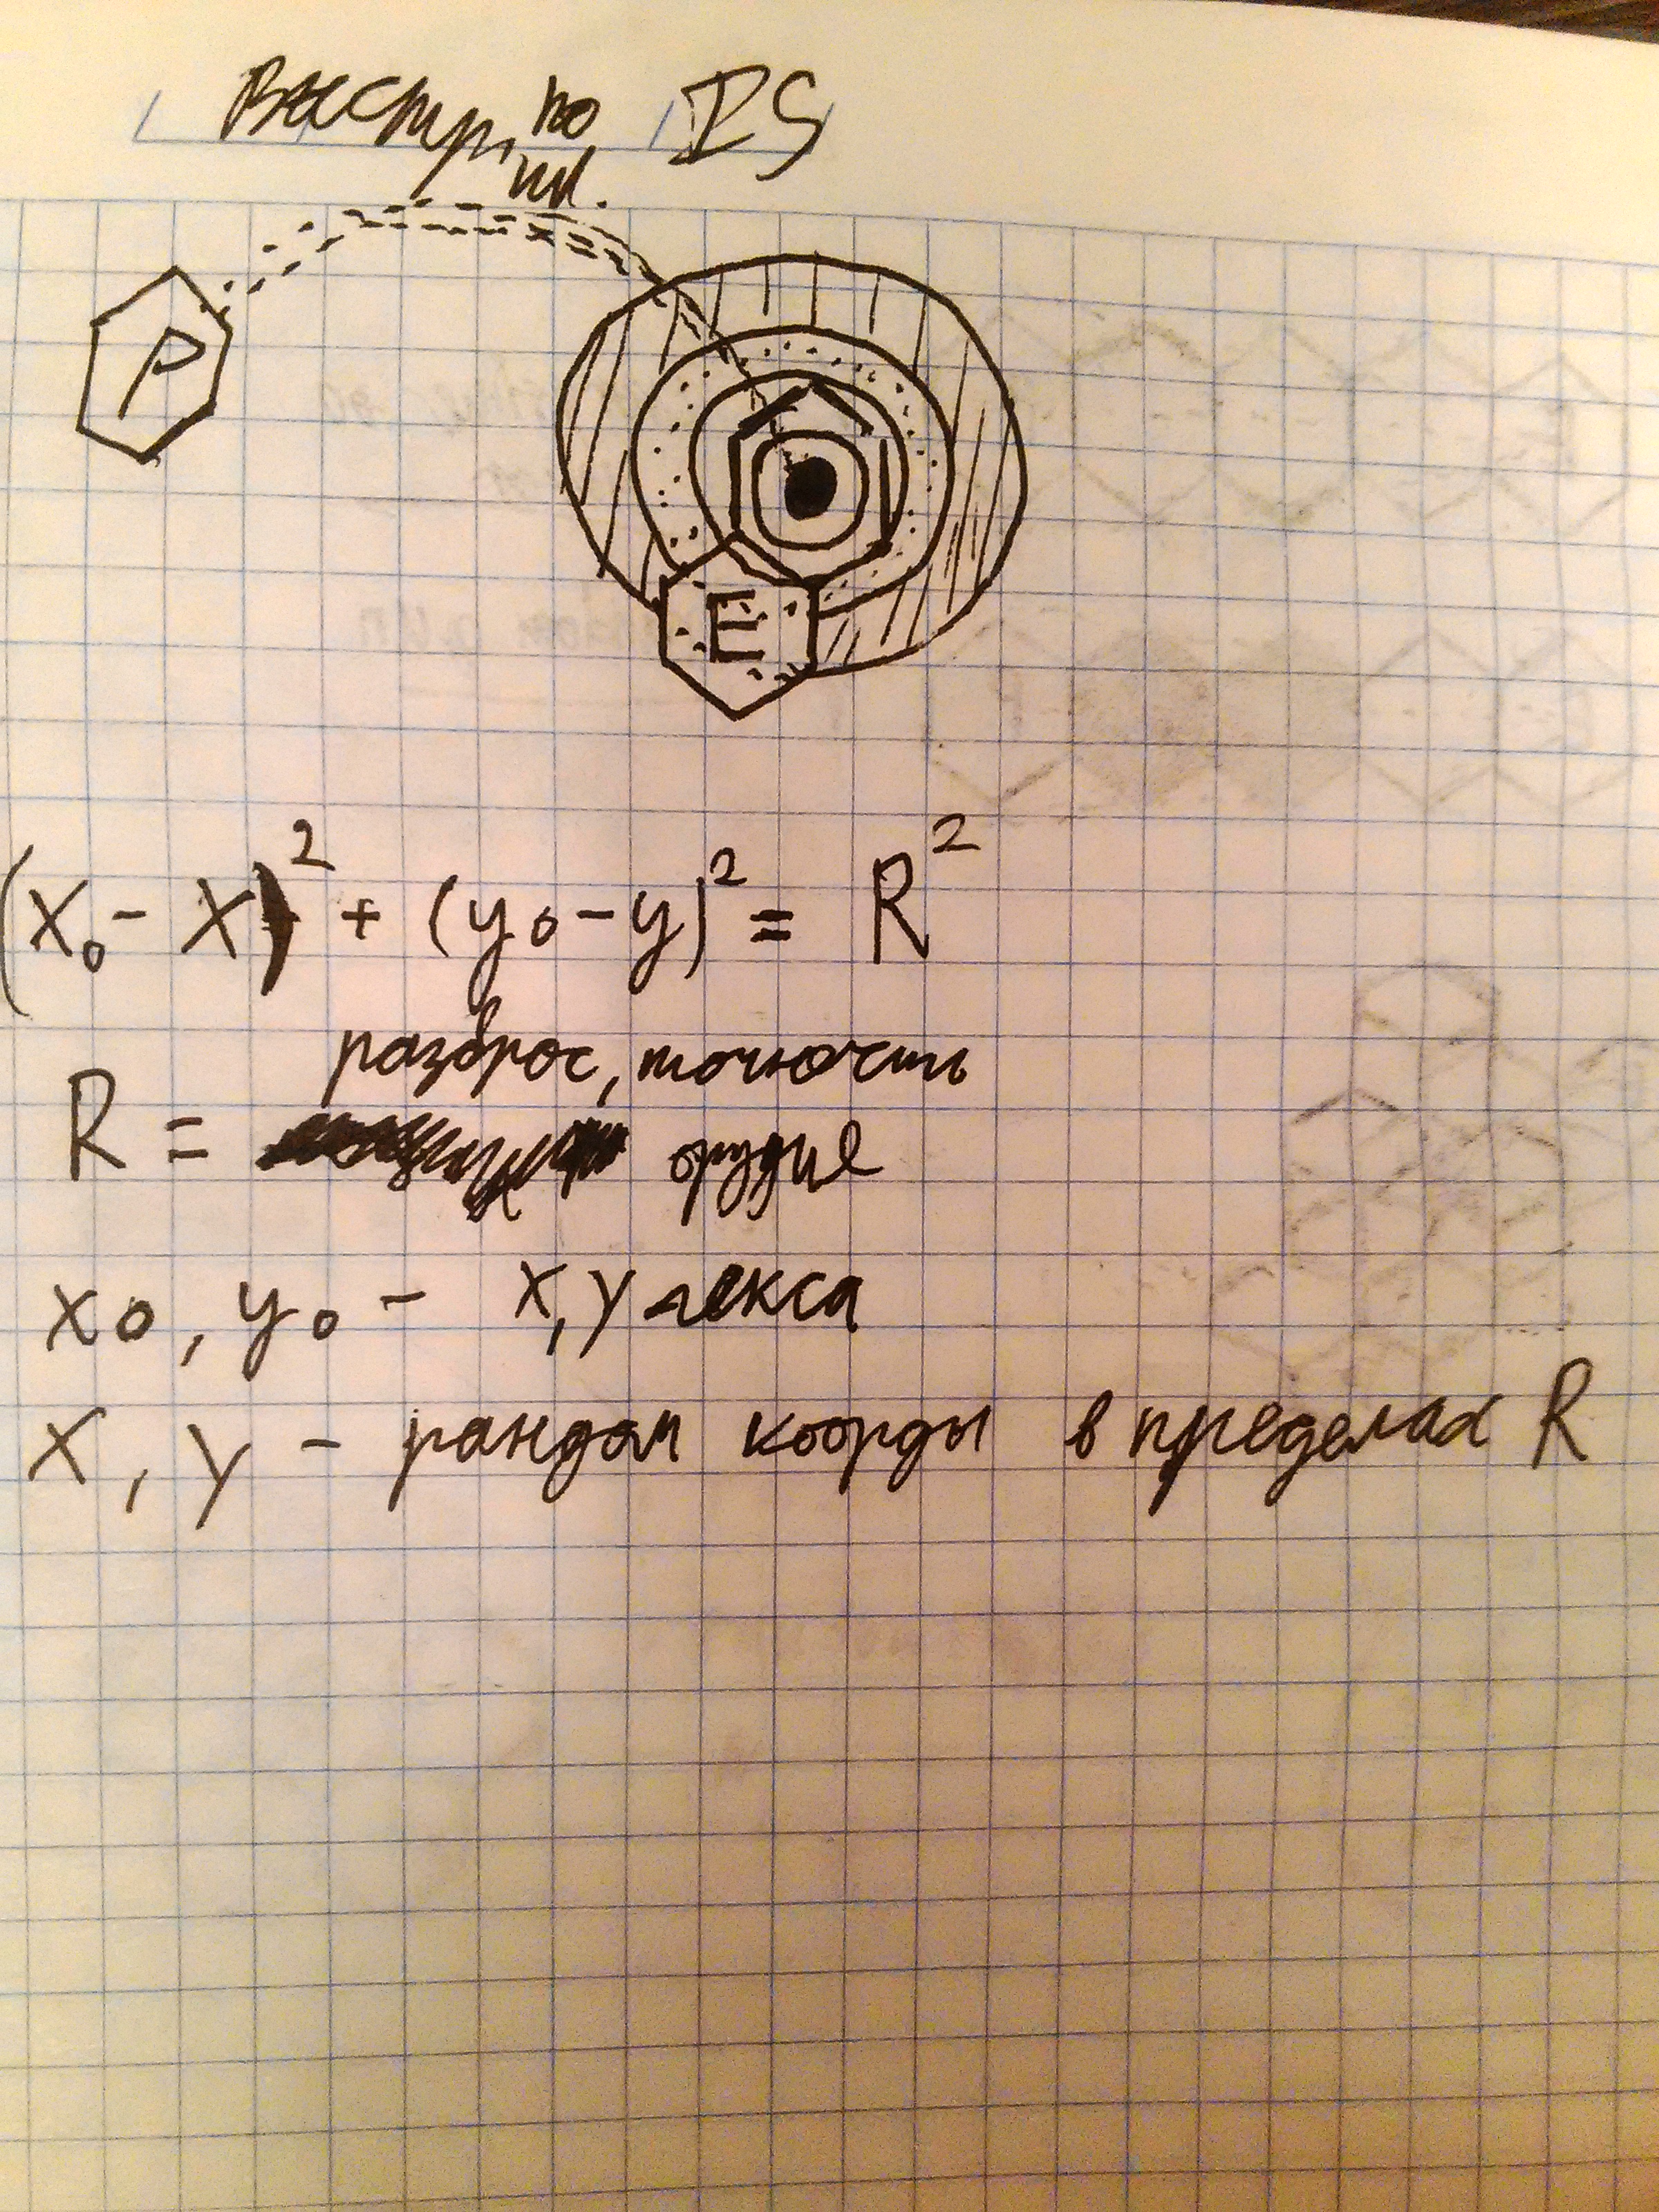 Выстр. по пл. IS
P
E
(x₀ - x)² + (y₀ - y)² = R²
разброс, точность
R = орудие
x₀, y₀ - x, y гекса
x, y - рандом коорды в пределах R